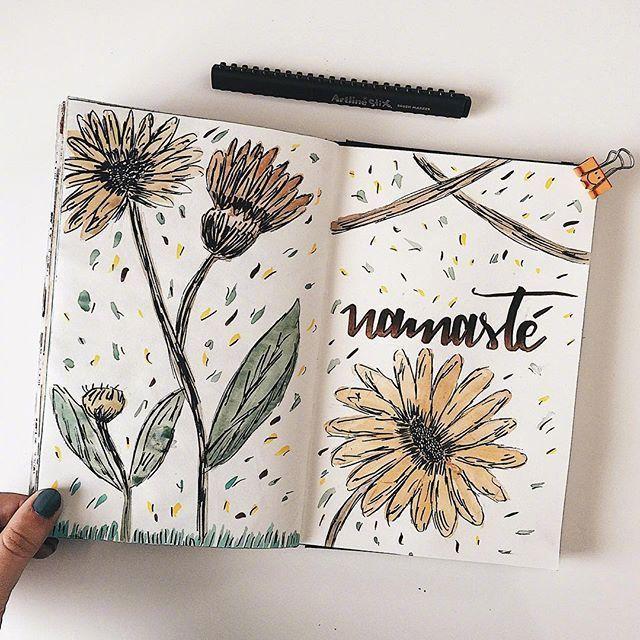 Artline Stix BRUSH MARKER
namasté